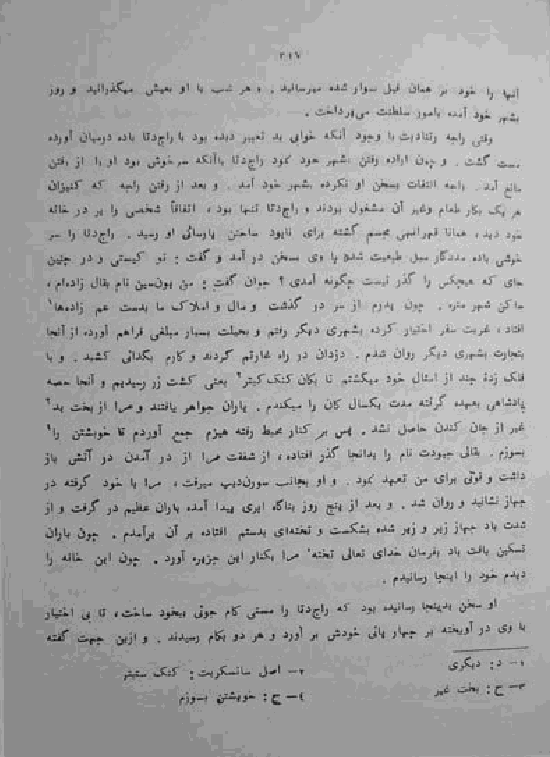 ۲۱۷
آنها را خود بر همان فیل سوار شده میرسانید . و هر شب با او بعیش میگذرانید و روز
بشهر خود آمده بامور سلطنت می‌پرداخت .
وقتی راجه رتنادبت با وجود آنکه خوابی بد تعبیر دیده بود با راج‌دتا باده درمیان آورده
مست گشت . و چون اراده رفتن بشهر خود کرد راج‌دتا باآنکه سرخوش بود او را از رفتن
مانع آمد . راجه التفات بسخن او نکرده بشهر خود آمد . و بعد از رفتن راجه که کنیزان
هر یک بکار طعام وغیر آن مشغول بودند و راج‌دتا تنها بود ، اتفاقاً شخصی را بر در خانه
خود دید ، همانا قهر الهی مجسم گشته برای نابود ساختن پارسائی او رسید . راج‌دتا را سر
خوشی باده مددگار میل طبیعت شده با وی سخن در آمد و گفت : تو کیستی و در چنین
جای که هیچکس را گذر نیست چگونه آمدی ؟ جوان گفت : من پون‌سین نام بقال زاده‌ام ،
ساکن شهر متره . چون پدرم از سر در گذشت و مال و املاک ما بدست عم زاده‌ها۱
افتاد ، غربت سفر اختیار کرده بشهری دیگر رفتم و بحیلت بسیار مبلغی فراهم آورده از آنجا
بتجارت بشهری دیگر روان شدم . دزدان در راه غارتم کردند و کارم بگدائی کشید . و با
فلک زدهٔ چند از امثال خود میگشتم تا بکان کنک کیتر۲ یعنی کشت زر رسیدیم و آنجا حصه
پادشاهی بعهده گرفته مدت یکسال کان را میکندم . یاران جواهر یافتند و مرا از بخت بد۳
غیر از جان کندن حاصل نشد . پس بر کنار محیط رفته هیزم جمع آوردم تا خویشتن را۴
بسوزم . بقالی جیودت نام را بدانجا گذر افتاده ، از شفقت مرا از در آمدن در آتش باز
داشت و قوتی برای من تعهد کرد . و او بجانب سورن‌دیپ میرفت ، مرا با خود گرفته در
جهاز نشانید و روان شد . و بعد از پنج روز بناگاه ابری پیدا آمده باران عظیم در گرفت و از
شدت باد جهاز زیر و زبر شده بشکست و تخته‌ای بدستم افتاده بر آن برآمدم . چون باران
تسکین یافت باد بفرمان خدای تعالی تخته مرا بکنار این جزیره آورد . چون این خانه را
دیدم خود را اینجا رسانیدم .
او سخن بدینجا رسانیده بود که راج‌دتا را مستی کام جوئی بیخود ساخت ، تا بی اختیار
با وی در آویخته بر چهار پائی خودش بر آورد و هر دو بکام رسیدند . و ازین جهت گفته
۱- د : دیگری
۲- اصل سانسکریت : کنک
۳- ح : بخت غیر
۴- ج : خویشتن بسوزم